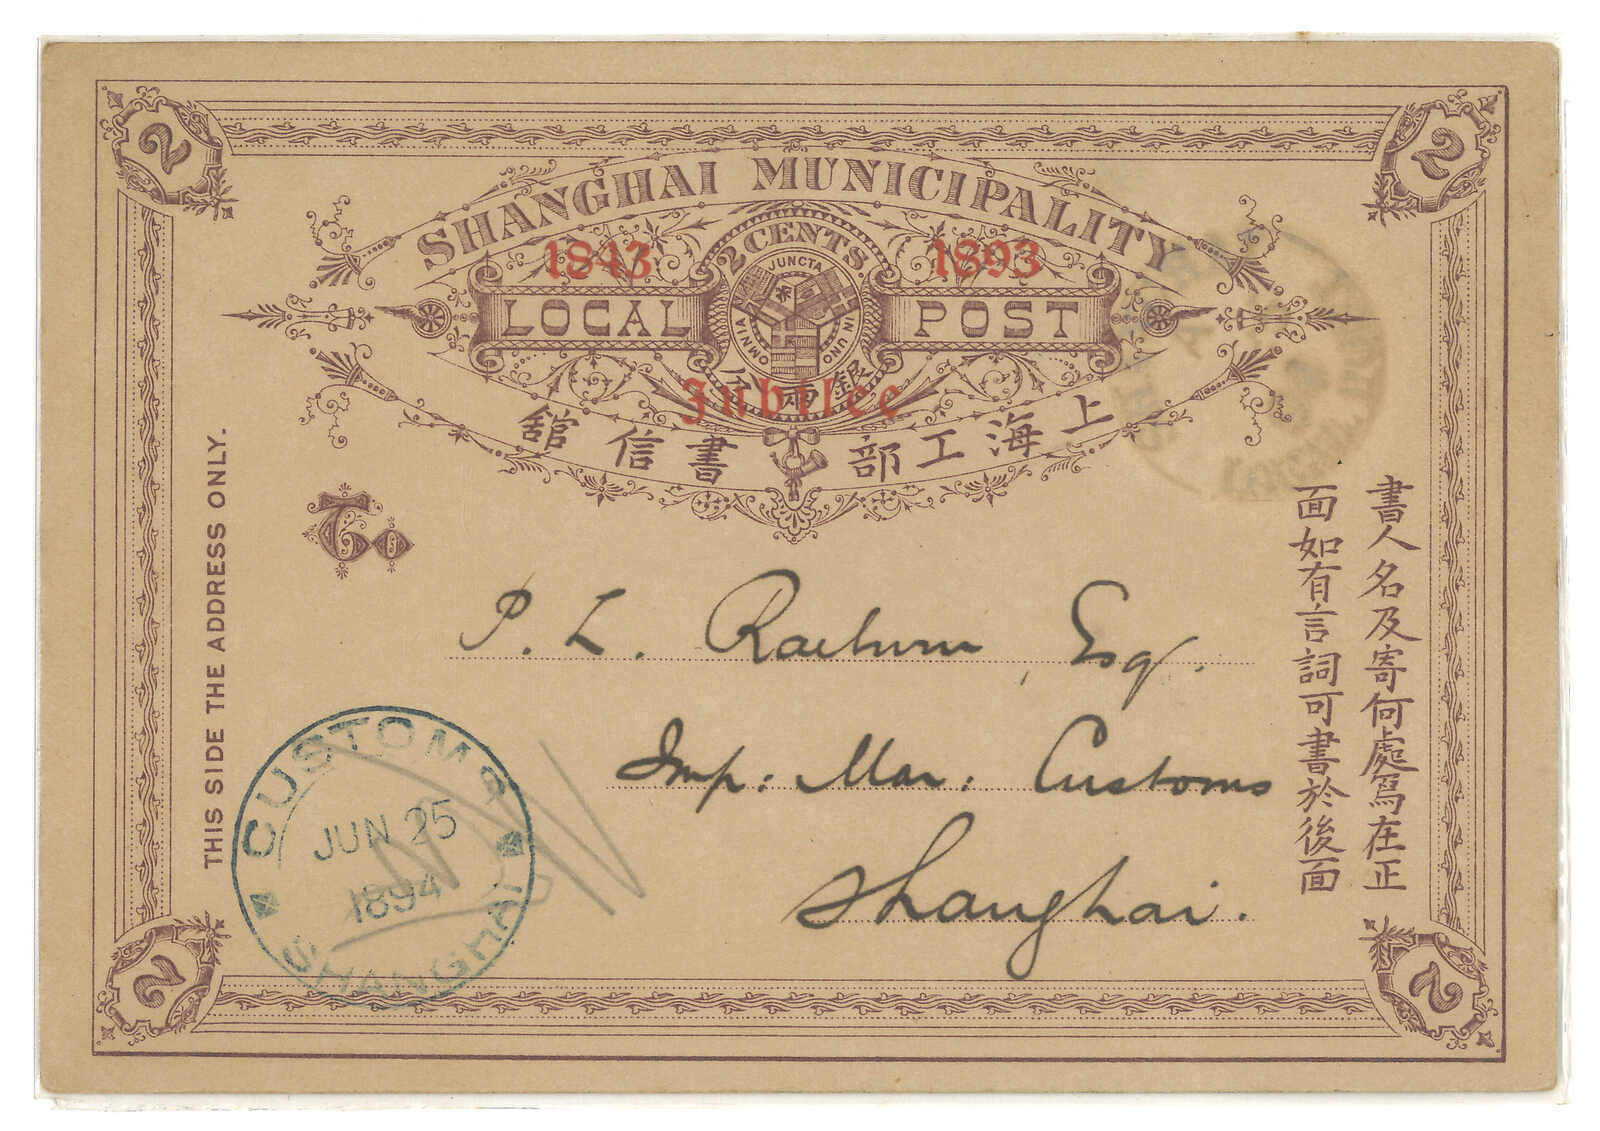 2
2
SHANGHAI MUNICIPALITY
1843
1893
2 CENTS.
OMNIA JUNCTA IN UNO
LOCAL
POST
分兩銀
Jubilee
舘信書部工海上
To
THIS SIDE THE ADDRESS ONLY.
書人名及寄何處爲在正
面如有言詞可書於後面
P. L. Raeburn, Esq.
Imp: Mar: Customs
Shanghai.
CUSTOMS
JUN 25
1894
SHANGHAI
2
2